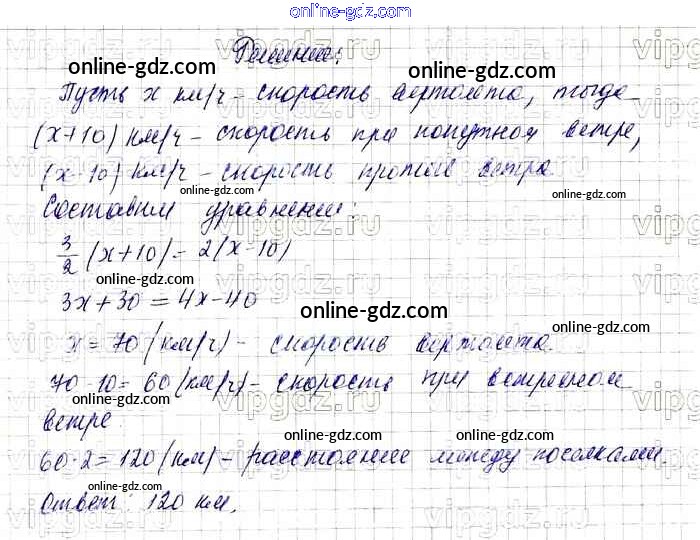 online-gdz.com
Решение:
Пусть x км/ч – скорость вертолета, тогда
(x+10) км/ч – скорость при попутном ветре,
(x-10) км/ч – скорость против ветра
Составим уравнение:
3/2 (x+10) = 2(x-10)
3x+30 = 4x-40
x = 70 (км/ч) – скорость вертолета.
70-10=60 (км/ч) – скорость при встречном
ветре
60·2=120 (км) – расстояние между поселками.
Ответ: 120 км.
online-gdz.com
online-gdz.com
online-gdz.com
online-gdz.com
online-gdz.com
online-gdz.com
online-gdz.com
online-gdz.com
online-gdz.com
online-gdz.com
online-gdz.com
online-gdz.com